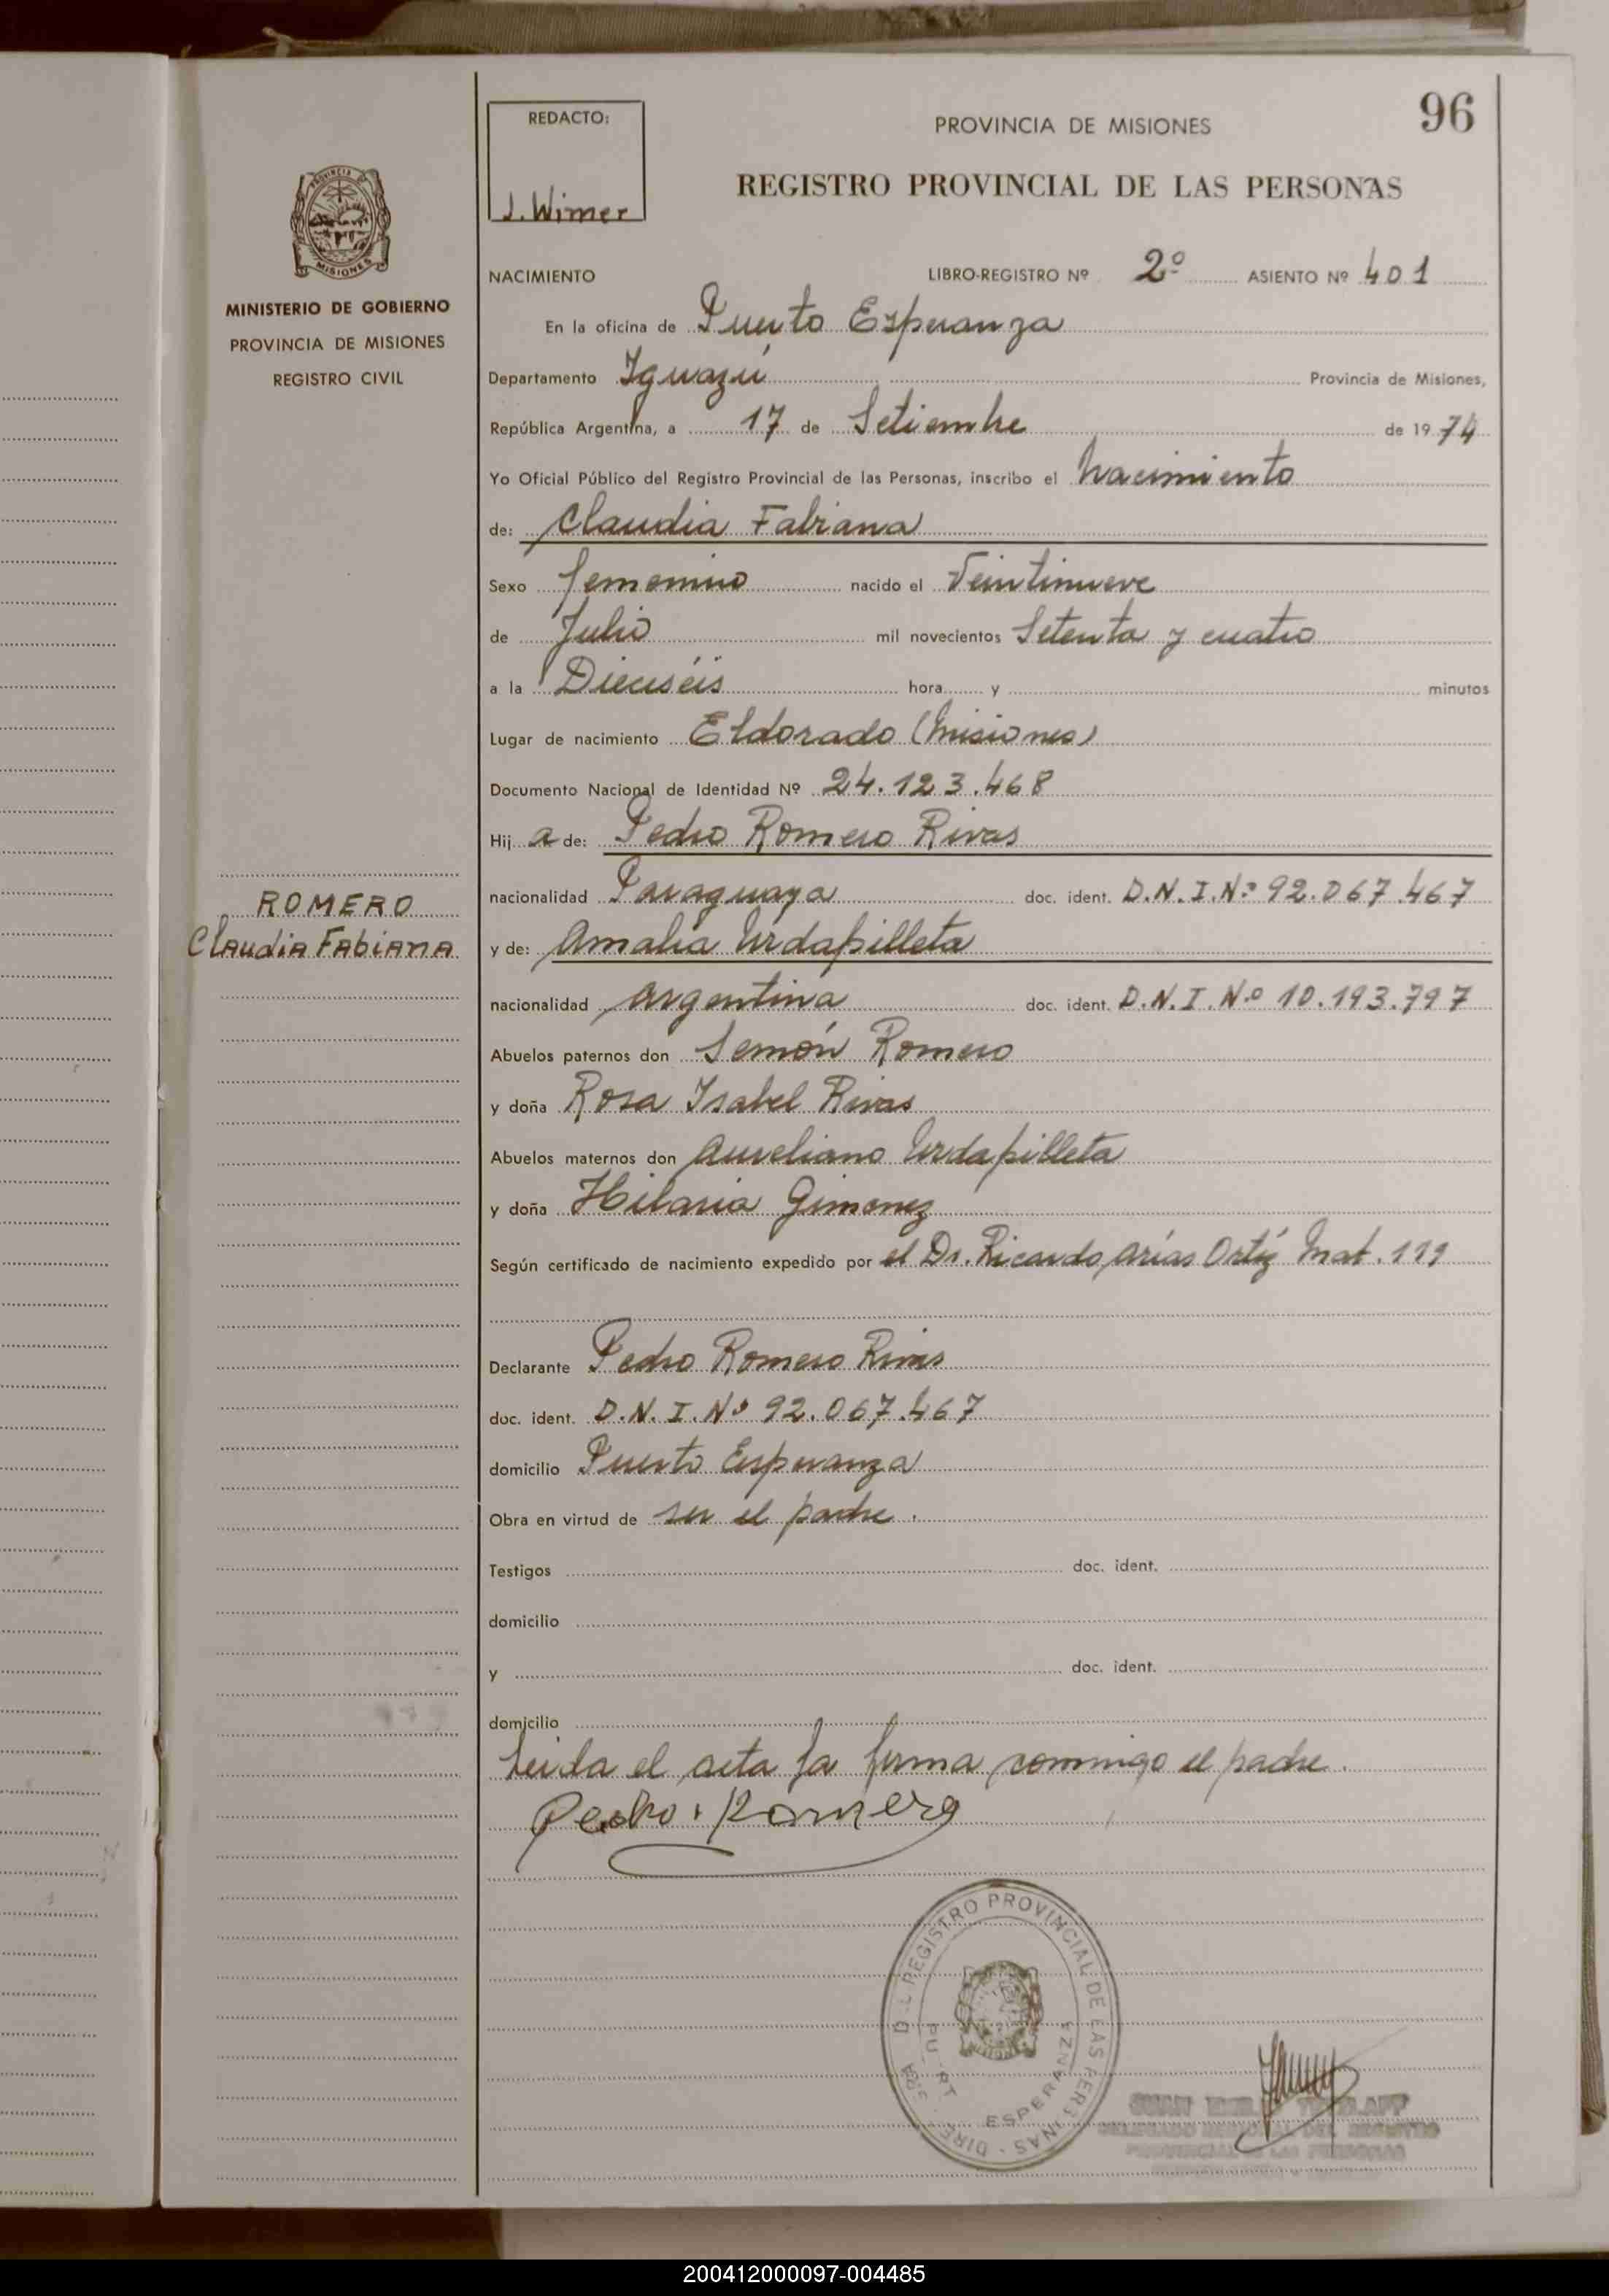 96
REDACTO:
J. Wimer
PROVINCIA DE MISIONES
REGISTRO PROVINCIAL DE LAS PERSONAS
PROVINCIA DE
MISIONES
MINISTERIO DE GOBIERNO
PROVINCIA DE MISIONES
REGISTRO CIVIL
ROMERO
Claudia Fabiana
NACIMIENTO LIBRO-REGISTRO Nº 2º ASIENTO Nº 401
En la oficina de Puerto Esperanza
Departamento Iguazú Provincia de Misiones,
República Argentina, a 17 de Setiembre de 1974
Yo Oficial Público del Registro Provincial de las Personas, inscribo el Nacimiento
de: Claudia Fabiana
Sexo femenino nacido el Veintinueve
de Julio mil novecientos Setenta y cuatro
a la Dieciséis hora y minutos
Lugar de nacimiento Eldorado (Misiones)
Documento Nacional de Identidad Nº 24.123.468
Hij a de: Pedro Romero Rivas
nacionalidad Paraguaya doc. ident. D.N.I.Nº 92.067.467
y de: Amalia Urdapilleta
nacionalidad argentina doc. ident. D.N.I.Nº 10.193.797
Abuelos paternos don Semón Romero
y doña Rosa Isabel Rivas
Abuelos maternos don Aureliano Urdapilleta
y doña Hilaria Gimenez
Según certificado de nacimiento expedido por el Dr. Ricardo Arías Ortíz Mat. 119
Declarante Pedro Romero Rivas
doc. ident. D.N.I.Nº 92.067.467
domicilio Puerto Esperanza
Obra en virtud de ser el padre.
Testigos doc. ident.
domicilio
y doc. ident.
domicilio
Leida el acta la firma conmigo el padre.
Pedro Romero
REGISTRO PROVINCIAL DE LAS PERSONAS
ESPERANZA
JUAN
DELEGADO DEL REGISTRO
PROVINCIAL DE LAS PERSONAS
200412000097-004485